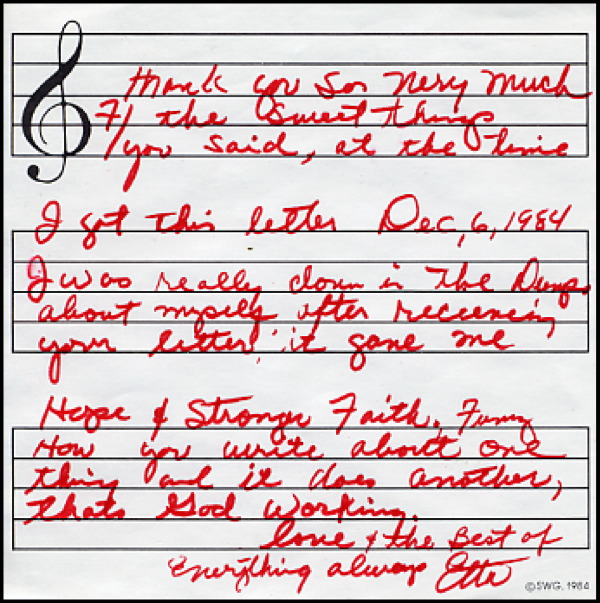 Thank you so Very Much
7/ the Sweet things
you said, at the time
I got this letter Dec, 6, 1984
I was really down in The Dumps
about myself after receiving
your letter, it gave me
Hope & Stronger Faith. Funny
How you write about one
thing and it does another,
thats God working.
love & the Best of
Everything always Etta
©SWG, 1984